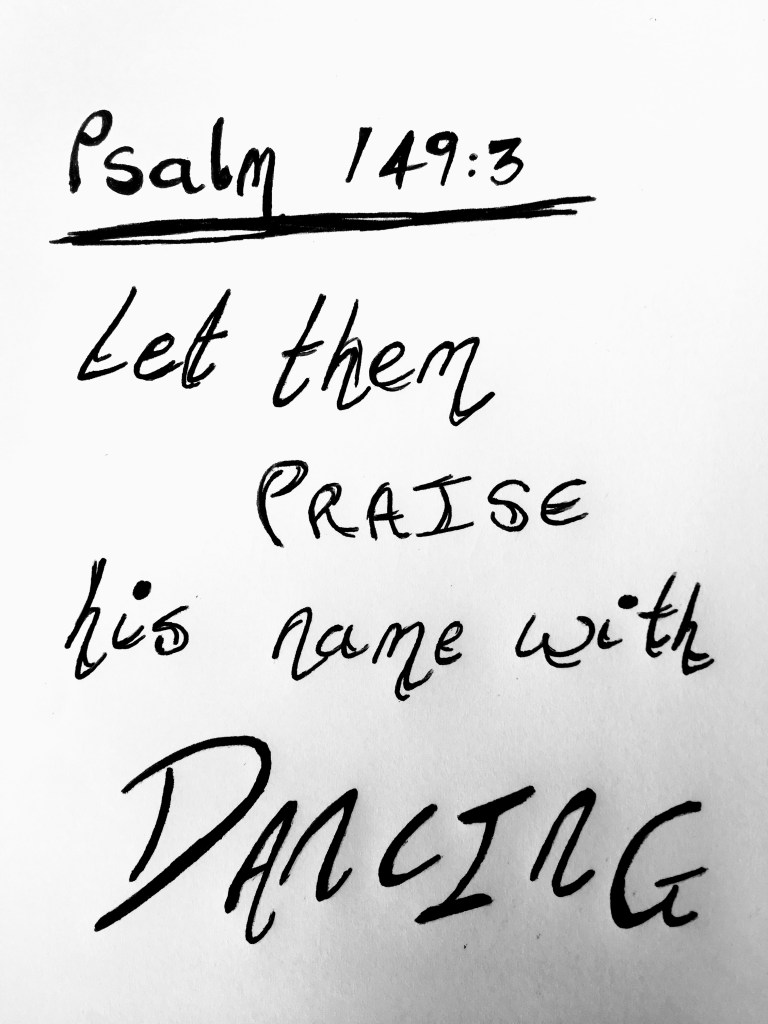 Psalm 149:3
Let them
PRAISE
his name with
DANCING